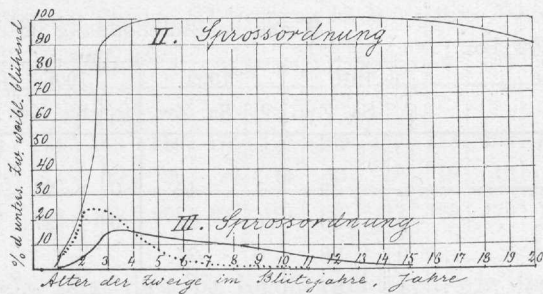 % d unters. Zw. weibl. blühend
100
90
80
70
60
50
40
30
20
10
II. Sprossordnung
III. Sprossordnung
1 2 3 4 5 6 7 8 9 10 11 12 13 14 15 16 17 18 19 20
Alter der Zweige im Blütejahre. Jahre